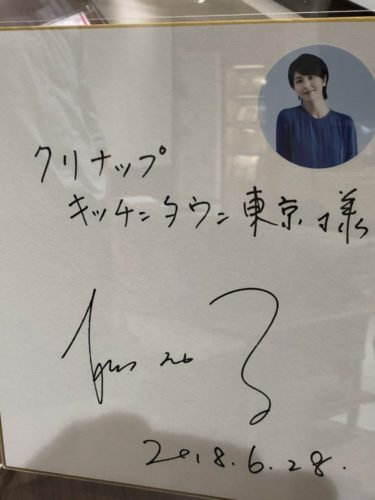 クリナップ
キッチンタウン東京様
2018.6.28.